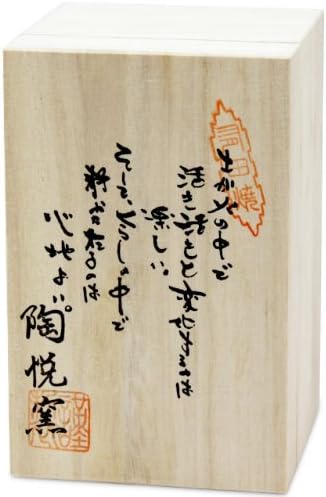 有田焼
土が火の中で
活き活きと変化するは
楽しい。
そして、くらしの中で
のは
心地よい。
陶悦窯